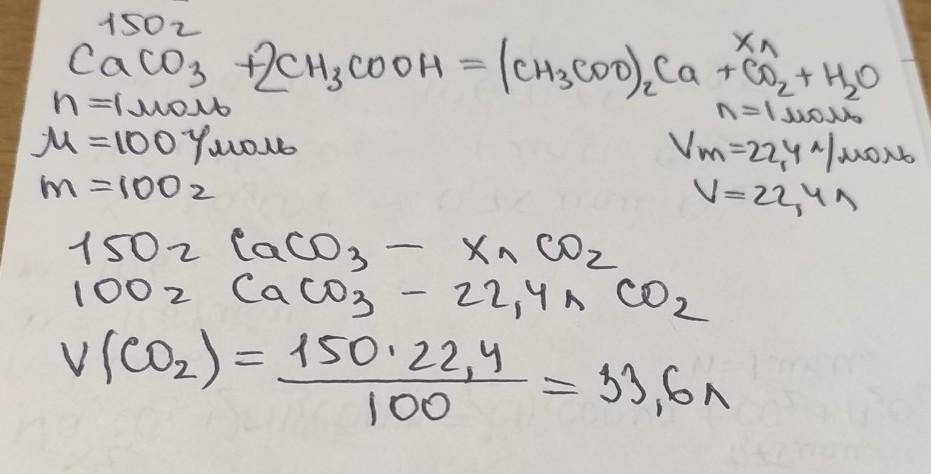 150г
xл
CaCO₃ + 2CH₃COOH = (CH₃COO)₂Ca + CO₂ + H₂O
n = 1 моль n = 1 моль
M = 100 г/моль Vm = 22,4 л/моль
m = 100 г V = 22,4 л
150г CaCO₃ — xл CO₂
100г CaCO₃ — 22,4л CO₂
V(CO₂) = 150·22,4 / 100 = 33,6л